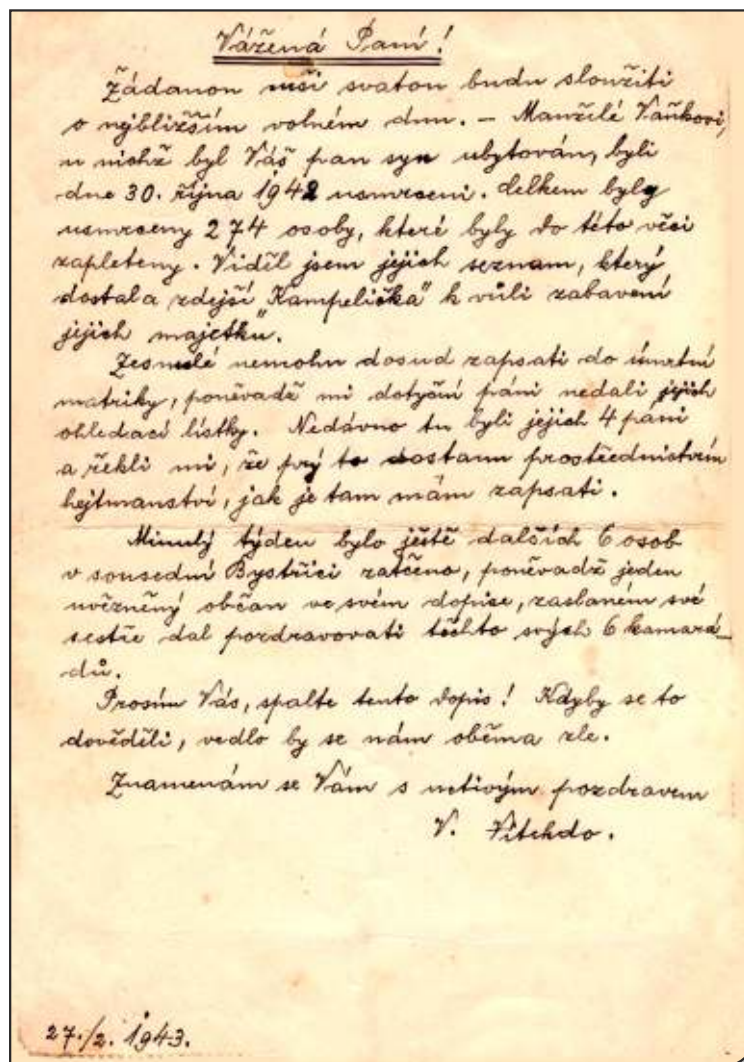 Vážená Paní!
Žádanou mši svatou budu sloužiti
o nejbližším volném dnu. – Manželé Vaňkovi,
u nichž byl Váš pan syn ubytován, byli
dne 30. října 1942 usmrceni. Celkem byly
usmrceny 274 osoby, které byly do této věci
zapleteny. Viděl jsem jejich seznam, který
dostala zdejší „Kampelička“ k vůli zabavení
jejich majetku.
Zesnulé nemohu dosud zapsati do úmrtní
matriky, poněvadž mi dotyční páni nedali jejich
ohledací lístky. Nedávno tu byli jejich 4 páni
a řekli mi, že prý to dostanu prostřednictvím
hejtmanství, jak je tam mám zapsati.
Minulý týden bylo ještě dalších 6 osob
v sousední Bystřici zatčeno, poněvadž jeden
uvězněný občan ve svém dopise, zaslaném své
sestře dal pozdravovati těchto svých 6 kamará-
dů.
Prosím Vás, spalte tento dopis! Kdyby se to
dověděli, vedlo by se nám oběma zle.
Znamenám se Vám s uctivým pozdravem
V.
27./2. 1943.